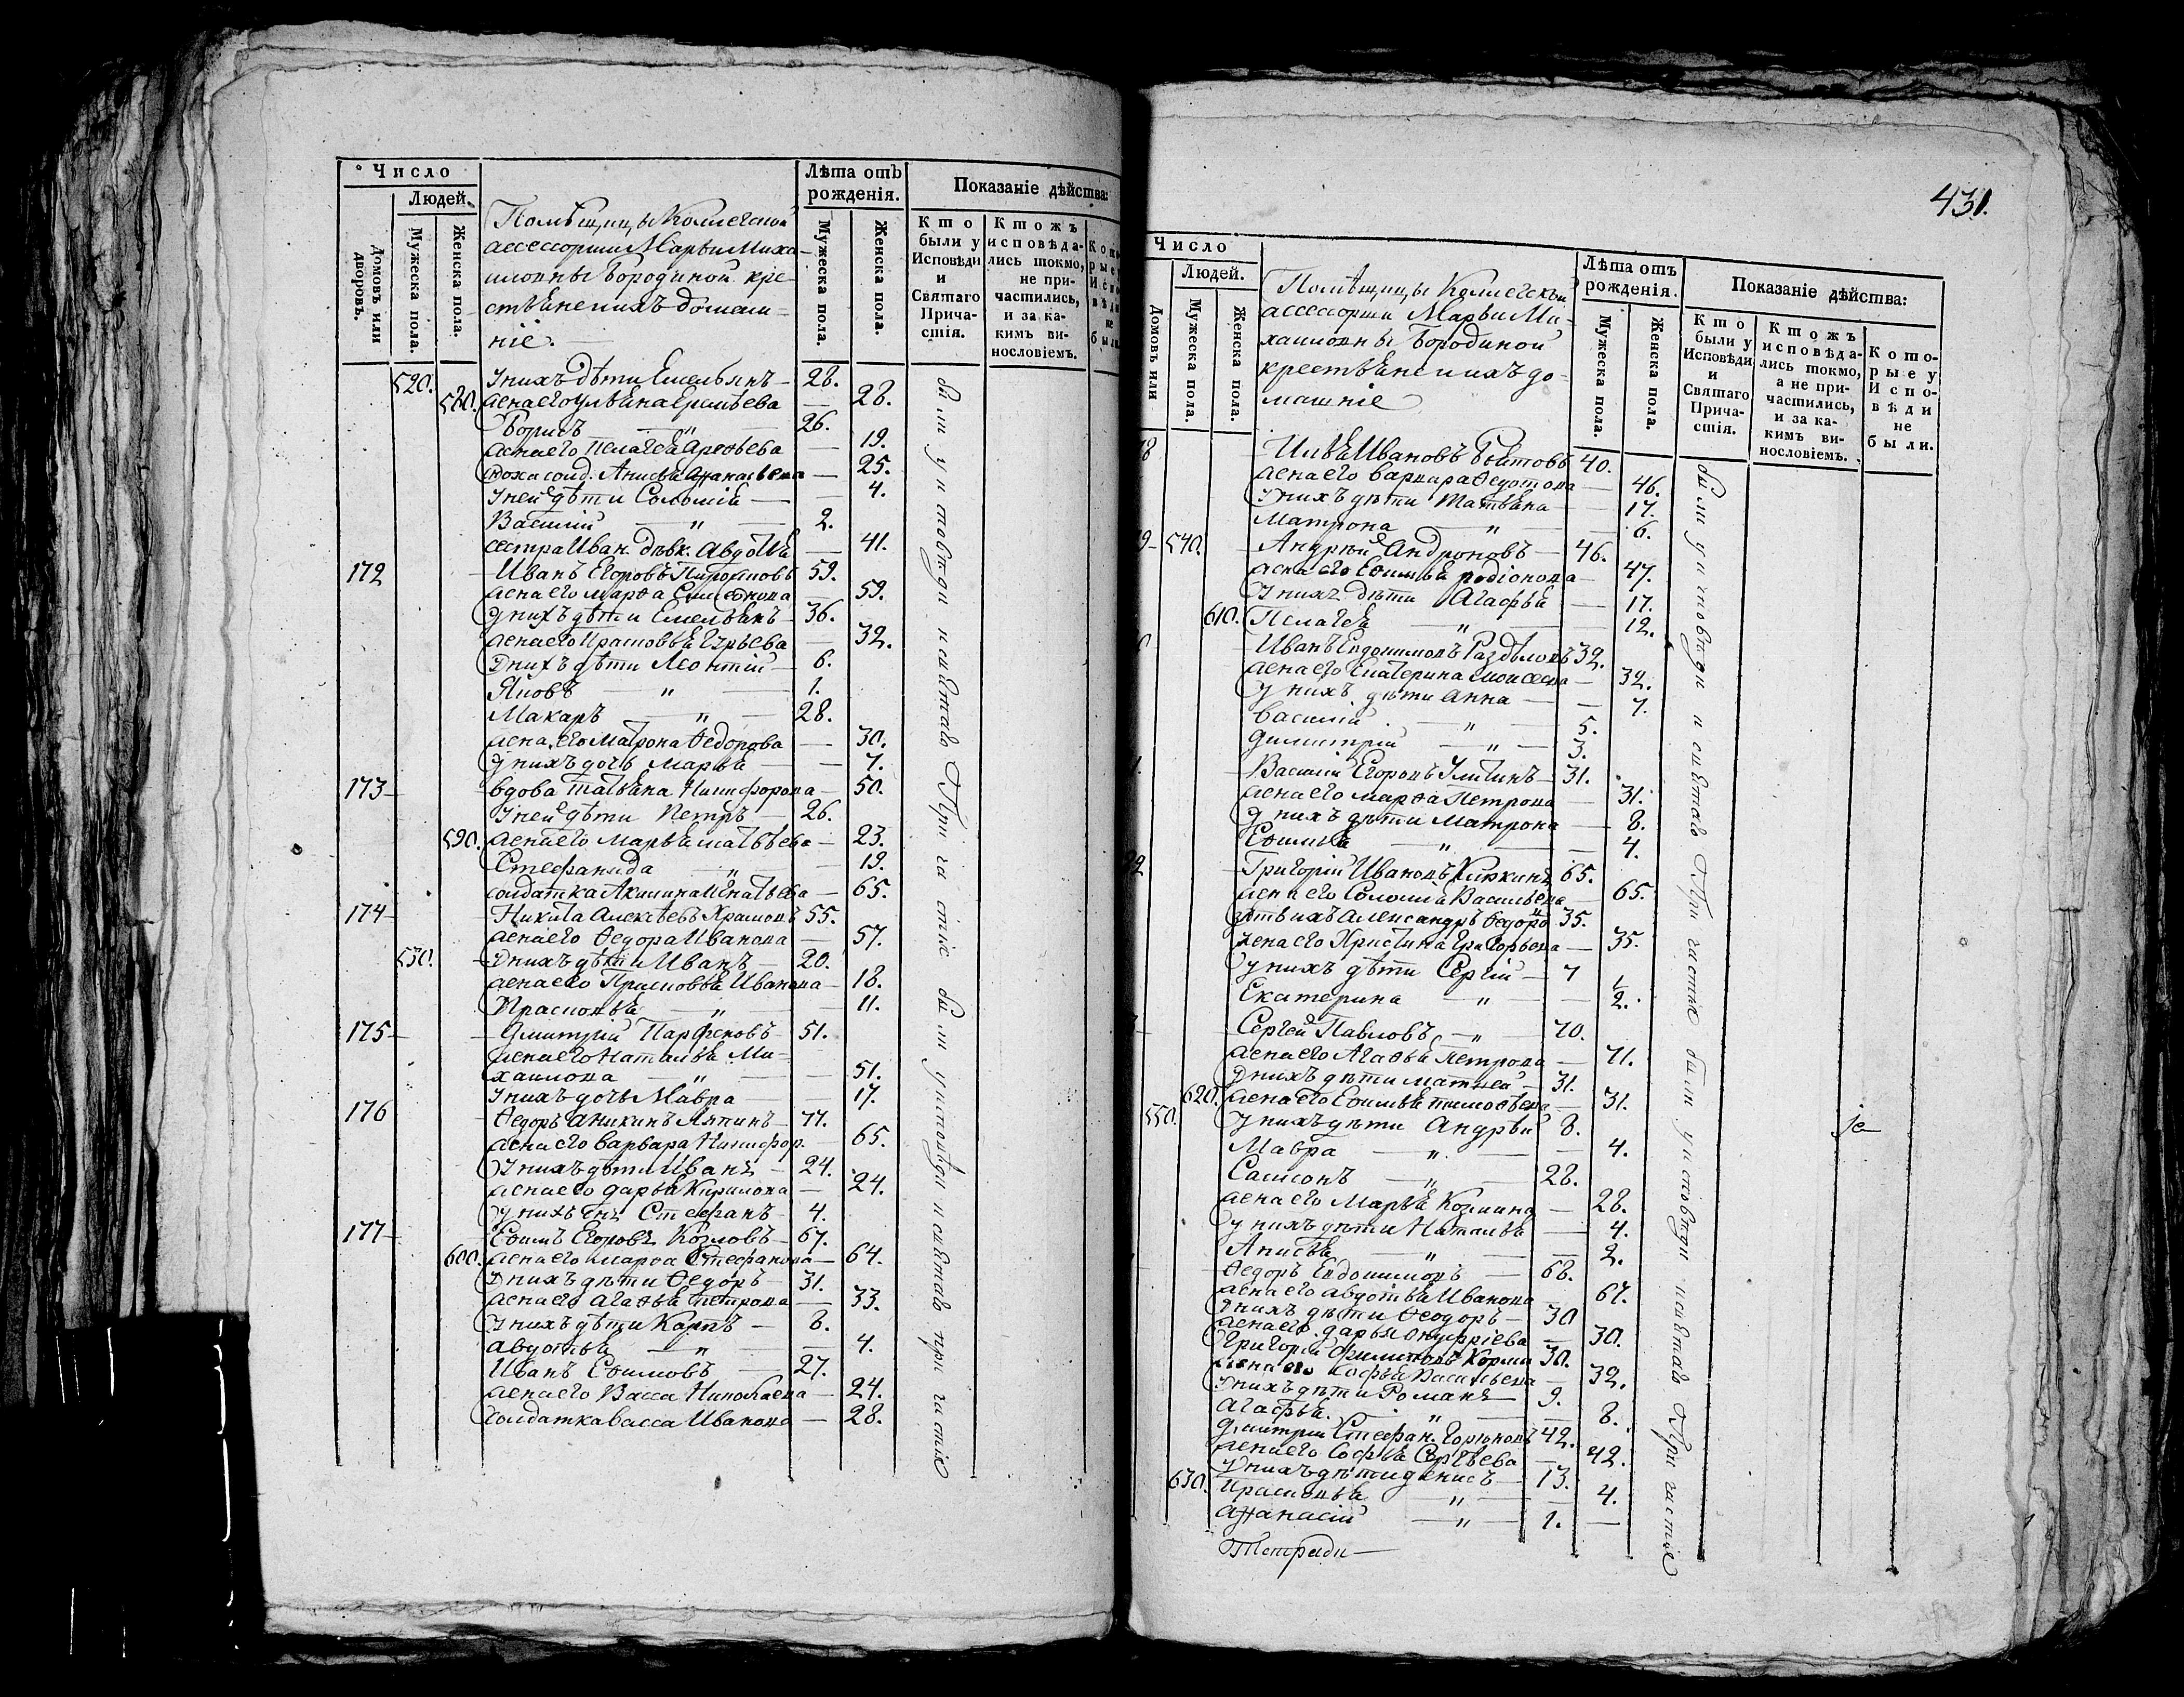 Число
Людей.
Домовъ или дворовъ.
Мужеска пола.
Женска пола.
Лѣта отъ рожденія.
Мужеска пола.
Женска пола.
Показаніе дѣйства:
Кто были у Исповѣди и Святаго Причастія.
Ктожъ исповѣдались токмо, а не причастились, и за какимъ винословіемъ.
Помѣщицы Коллегской
ассессорши Марьи Миха-
иловны Бородиной кре-
стьяне и ихъ домаш-
ніе.
520. У нихъ дѣти Емельянъ — 28.
580. жена его Ульяна — 28.
Борисъ — " — 26.
жена его Пелагея — 19.
солд. Анисья Афанасьева — 25.
У ней дѣти Соломія — 4.
Василій — " — 2.
сестра Иван. дѣвк. Авдотья — 41.
172 Иванъ Егоровъ 59.
жена его Марѳа — 59.
У нихъ дѣти Емельянъ — 36.
жена его Прасковья — 32.
У нихъ дѣти Леонтій — 6.
Яковъ — " — 1.
Макаръ — " — 28.
жена его Матрона Ѳедорова — 30.
У нихъ дочь Марья — 7.
173 вдова Татьяна Никифорова — 50.
У ней дѣти Петръ — 26.
590. жена его Марья Матвѣева — 23.
Стефанида " — 19.
солдатка Акилина Игнатьева — 65.
174 Никита Алексѣевъ Храмовъ 55.
жена его Ѳедора Иванова — 57.
530. У нихъ дѣти Иванъ — 20.
жена его Прасковья Иванова — 18.
Прасковья — " — 11.
175 Дмитрій Парфеновъ — 51.
жена его Наталья Ми-
хаилова — " — 51.
У нихъ дочь Мавра — 17.
176 Ѳедоръ Аникинъ Ляпинъ — 77.
жена его Варвара Никифор. 65.
У нихъ дѣти Иванъ — 24.
жена его Дарья Кирилова — 24.
У нихъ Стефанъ — 4.
177 Еѳимъ Егоровъ Козловъ — 67.
600. жена его Марѳа Стефанова — 64.
У нихъ дѣти Ѳедоръ — 31.
жена его Агаѳья Петрова — 33.
У нихъ дѣти Карпъ — 8.
Авдотья — " — 4.
Иванъ Еѳимовъ — 27.
жена его Васса Николаева — 24.
солдатка Васса Иванова — 28.
были у исповѣди и святаго Причастіе были у исповѣди и святаго причастіе
431.
Число
Людей.
Домовъ или
Мужеска пола.
Женска пола.
Лѣта отъ рожденія.
Мужеска пола.
Женска пола.
Показаніе дѣйства:
Кто были у Исповѣди и Святаго Причастія.
Ктожъ исповѣдались токмо, а не причастились, и за какимъ винословіемъ.
Которые у Исповѣди не были.
Помѣщицы Коллегской
ассессорши Марьи Ми-
хаиловны Бородиной
крестьяне и ихъ до-
машніе
8 Илья Ивановъ 40.
жена его Варвара Ѳедотова — 46.
У нихъ дѣти Татьяна — 17.
Матрона — " — 6.
9 540. Андрей Андроновъ — 46.
жена его Еѳимья Родіонова — 47.
У нихъ дѣти Агафья — 17.
610. Пелагея " — 12.
Иванъ Евдокимовъ 32.
жена его Екатерина Моисеева — 32.
У нихъ дѣти Анна — 7.
Василій — " — 5.
Димитрій — " — 3.
Василій Егоровъ Улитинъ — 31.
жена его Марѳа Петрова — 31.
У нихъ дѣти Матрона — 8.
Еѳимья — " — 4.
Григорій Ивановъ 65.
жена его Соломія Васильева — 65.
зять ихъ Александръ Ѳедоро 35.
жена его Христина Григорьева — 35.
У нихъ дѣти Сергій — 7
Екатерина — " — ½.
Сергей Павловъ — " — 70.
жена его Агаѳья Петрова — 71.
У нихъ дѣти Матвей — 31.
620. жена его Еѳимья Тимоѳѣева — 31.
550. У нихъ дѣти Андрѣй 8.
Мавра — " — 4.
Самсонъ — " — 28.
жена его Марья Козмина — 28.
У нихъ дѣти Наталья — 4.
Анисья — " — 2.
Ѳедоръ Евдокимовъ — 68.
жена его Авдотья Иванова — 67.
У нихъ дѣти Ѳеодоръ — 30
жена его Дарья Онуфріева — 30.
Григорій Филиповъ 30.
жена его Софья Васильева — 32.
У нихъ дѣти Романъ — 9.
Агафья. — " — 8.
Дмитрій Стефан. 42.
жена его Софья Сергѣева — 42.
У нихъ дѣти Денисъ — 13.
630. Прасковья — " — 4.
Афанасій — " — 1. —
Тетради —
были у исповѣди и святаго Причастіе были у исповѣди и святаго Причастіе